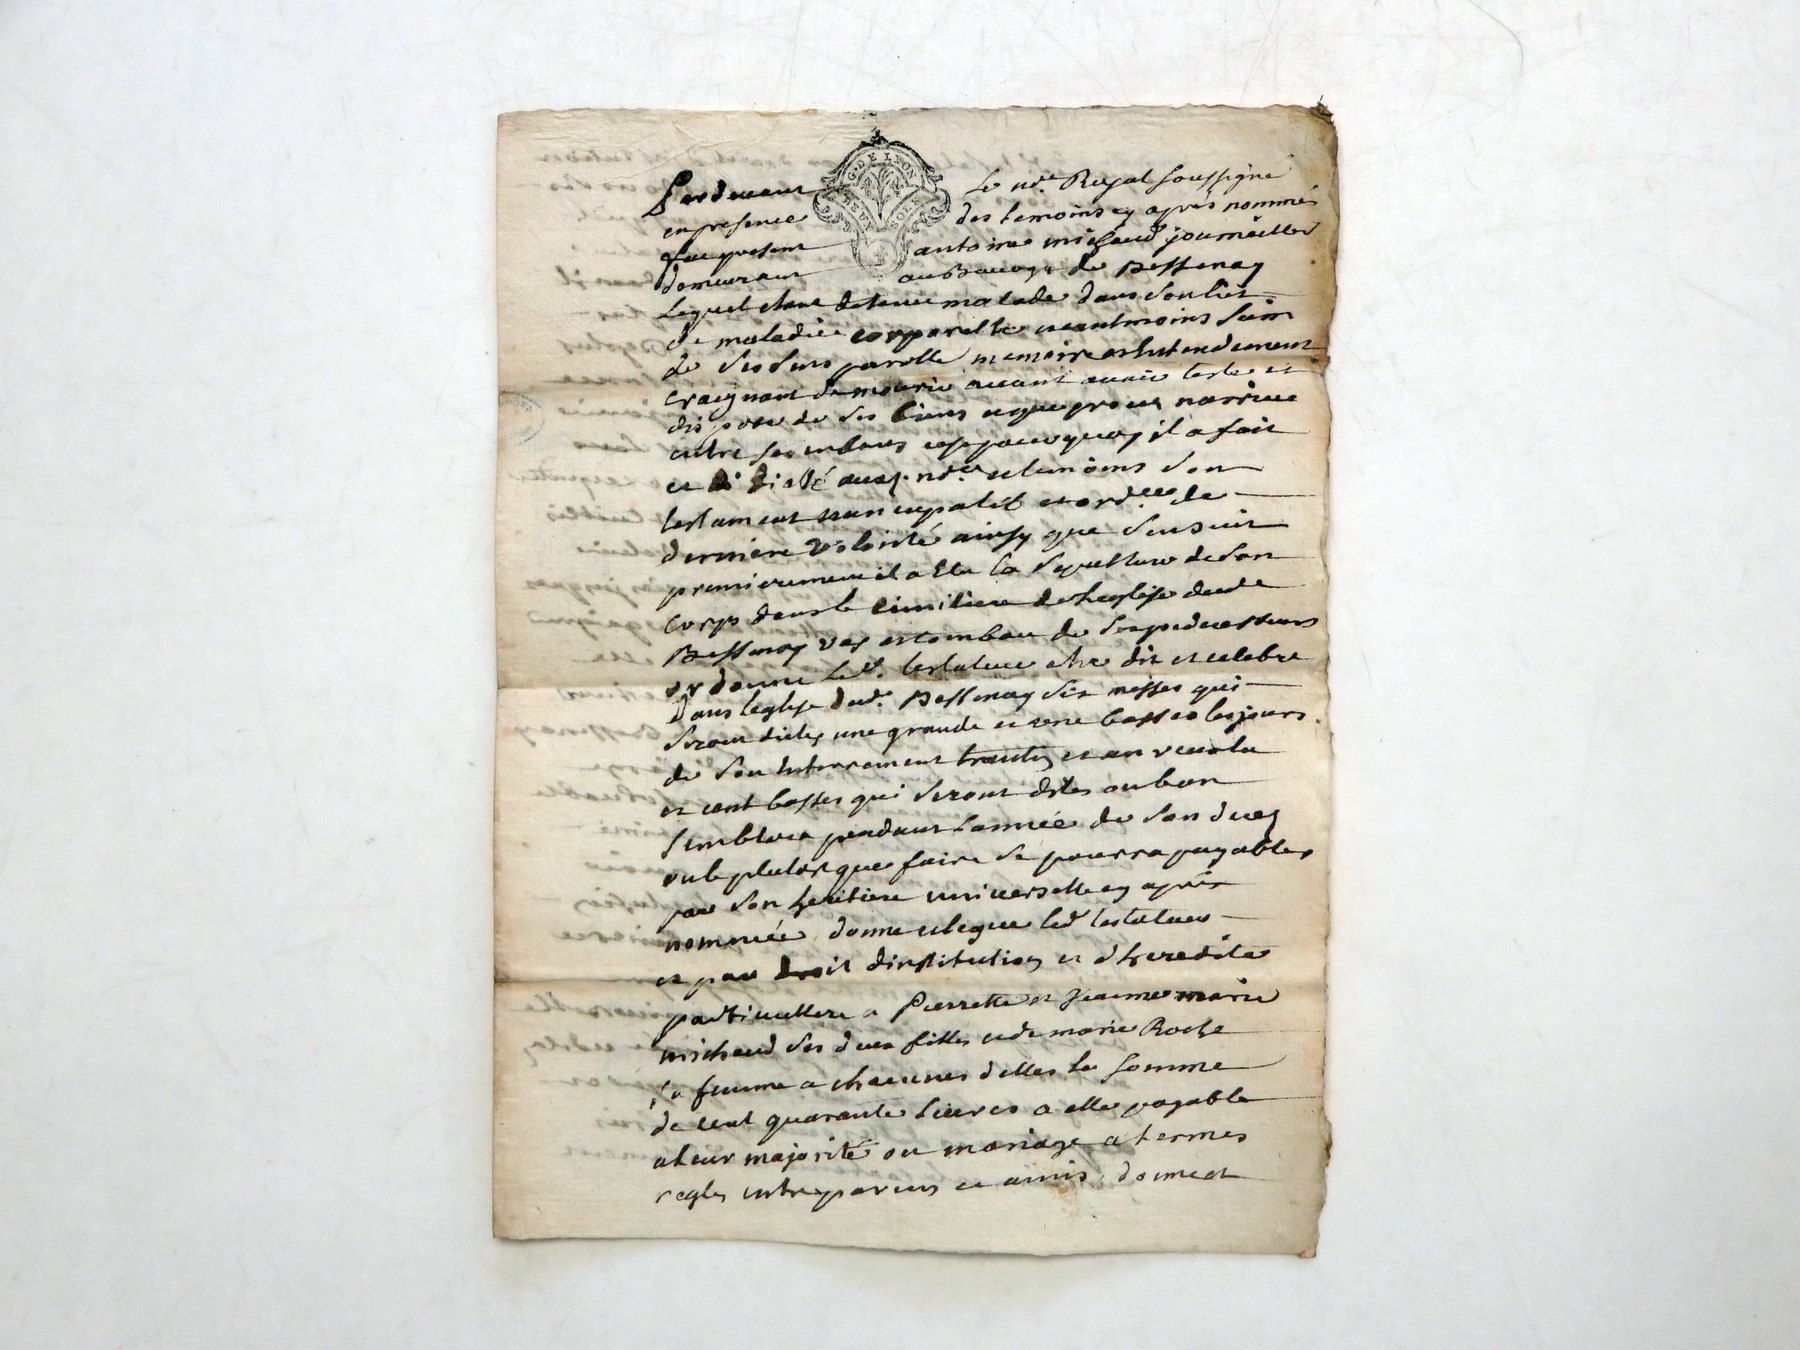 G. DE LION
DEUX SOLS
Pardevant Le nre. Royal soussigné
en presence des temoins cy apres nommés
fut present antoine michaud journaillier
demeurant au Bourg de Bessenay
Lequel etant detenu malade dans son lict
de maladie corporelle neantmoins sain
de ses sens parolle memoire et entendement
craignant de mourir avant avoir testé et
disposé de ses biens et que proces n'arrive
entre ses enfans c'est pourquoy il a fait
et dicté auxd. nre. et temoins son
testament nuncupatif et ordce. de
derniere volonté ainsy que s'ensuit
premierement il a elu la sepulture de son
corps dans le cimitiere de l'eglise dud
Bessenay vas et tombau de ses predecesseurs
ordonne led. testateur etre dit et celebré
dans l'eglise dud. Bessenay six messes qui
seront dictes une grande et une basse les jours
de son enterrement trantin et an revolu
et cent basses qui seront dites au bon
semblera pendant l'année de son deces
ou le plutost que faire se pourra payables
par son heritiere universelle cy après
nommée, donne et legue led testateur
et par droit d'institution et d'heredité
particuliere a Pierrette et Jeanne marie
michaud ses deux filles et de marie Roche
sa femme a chacunes d'elles la somme
de cent quarante livres a elle payable
a leur majorité ou mariage a termes
regles entre parens et amis, donne et